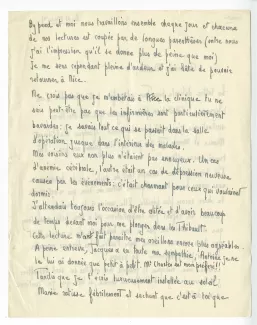 Bypeed et moi nous travaillons ensemble chaque jour et chacune
de nos lectures est coupée par de longues parenthèses (entre nous
j'ai l'impression qu'il se donne plus de peine que moi)
Je me sens cependant pleine d'ardeur et j'ai hâte de pouvoir
retourner à Nice.
Ne crois pas que je m'embêtais à Nice la clinique. Tu ne
sais peut-être pas que les infirmières sont particulièrement
bavardes: je savais tout ce qui se passait dans la salle
d'opération jusque dans l'intérieur des malades.
Mes voisins eux non plus n'étaient pas ennuyeux. Un cas
d'anémie cérébrale, l'autre était un cas de dépression nerveuse
causée par les événements: c'était charmant pour ceux qui voulaient
dormir.
J'attendais toujours l'occasion d'être alitée et d'avoir beaucoup
de temps devant moi pour me plonger dans les Thibault.
Cette lecture m'ont fait paraître mes oreillons moins plus agréables.
A peine entrevu, Jacques a eu toute ma sympathie, Antoine je ne
la lui ai donnée que petit à petit. Mr Chasles est mon préféré!!
Tandis que je t'écris luxueusement installée au soleil
Mamie ratisse fébrilement et sachant que c'est à toi que